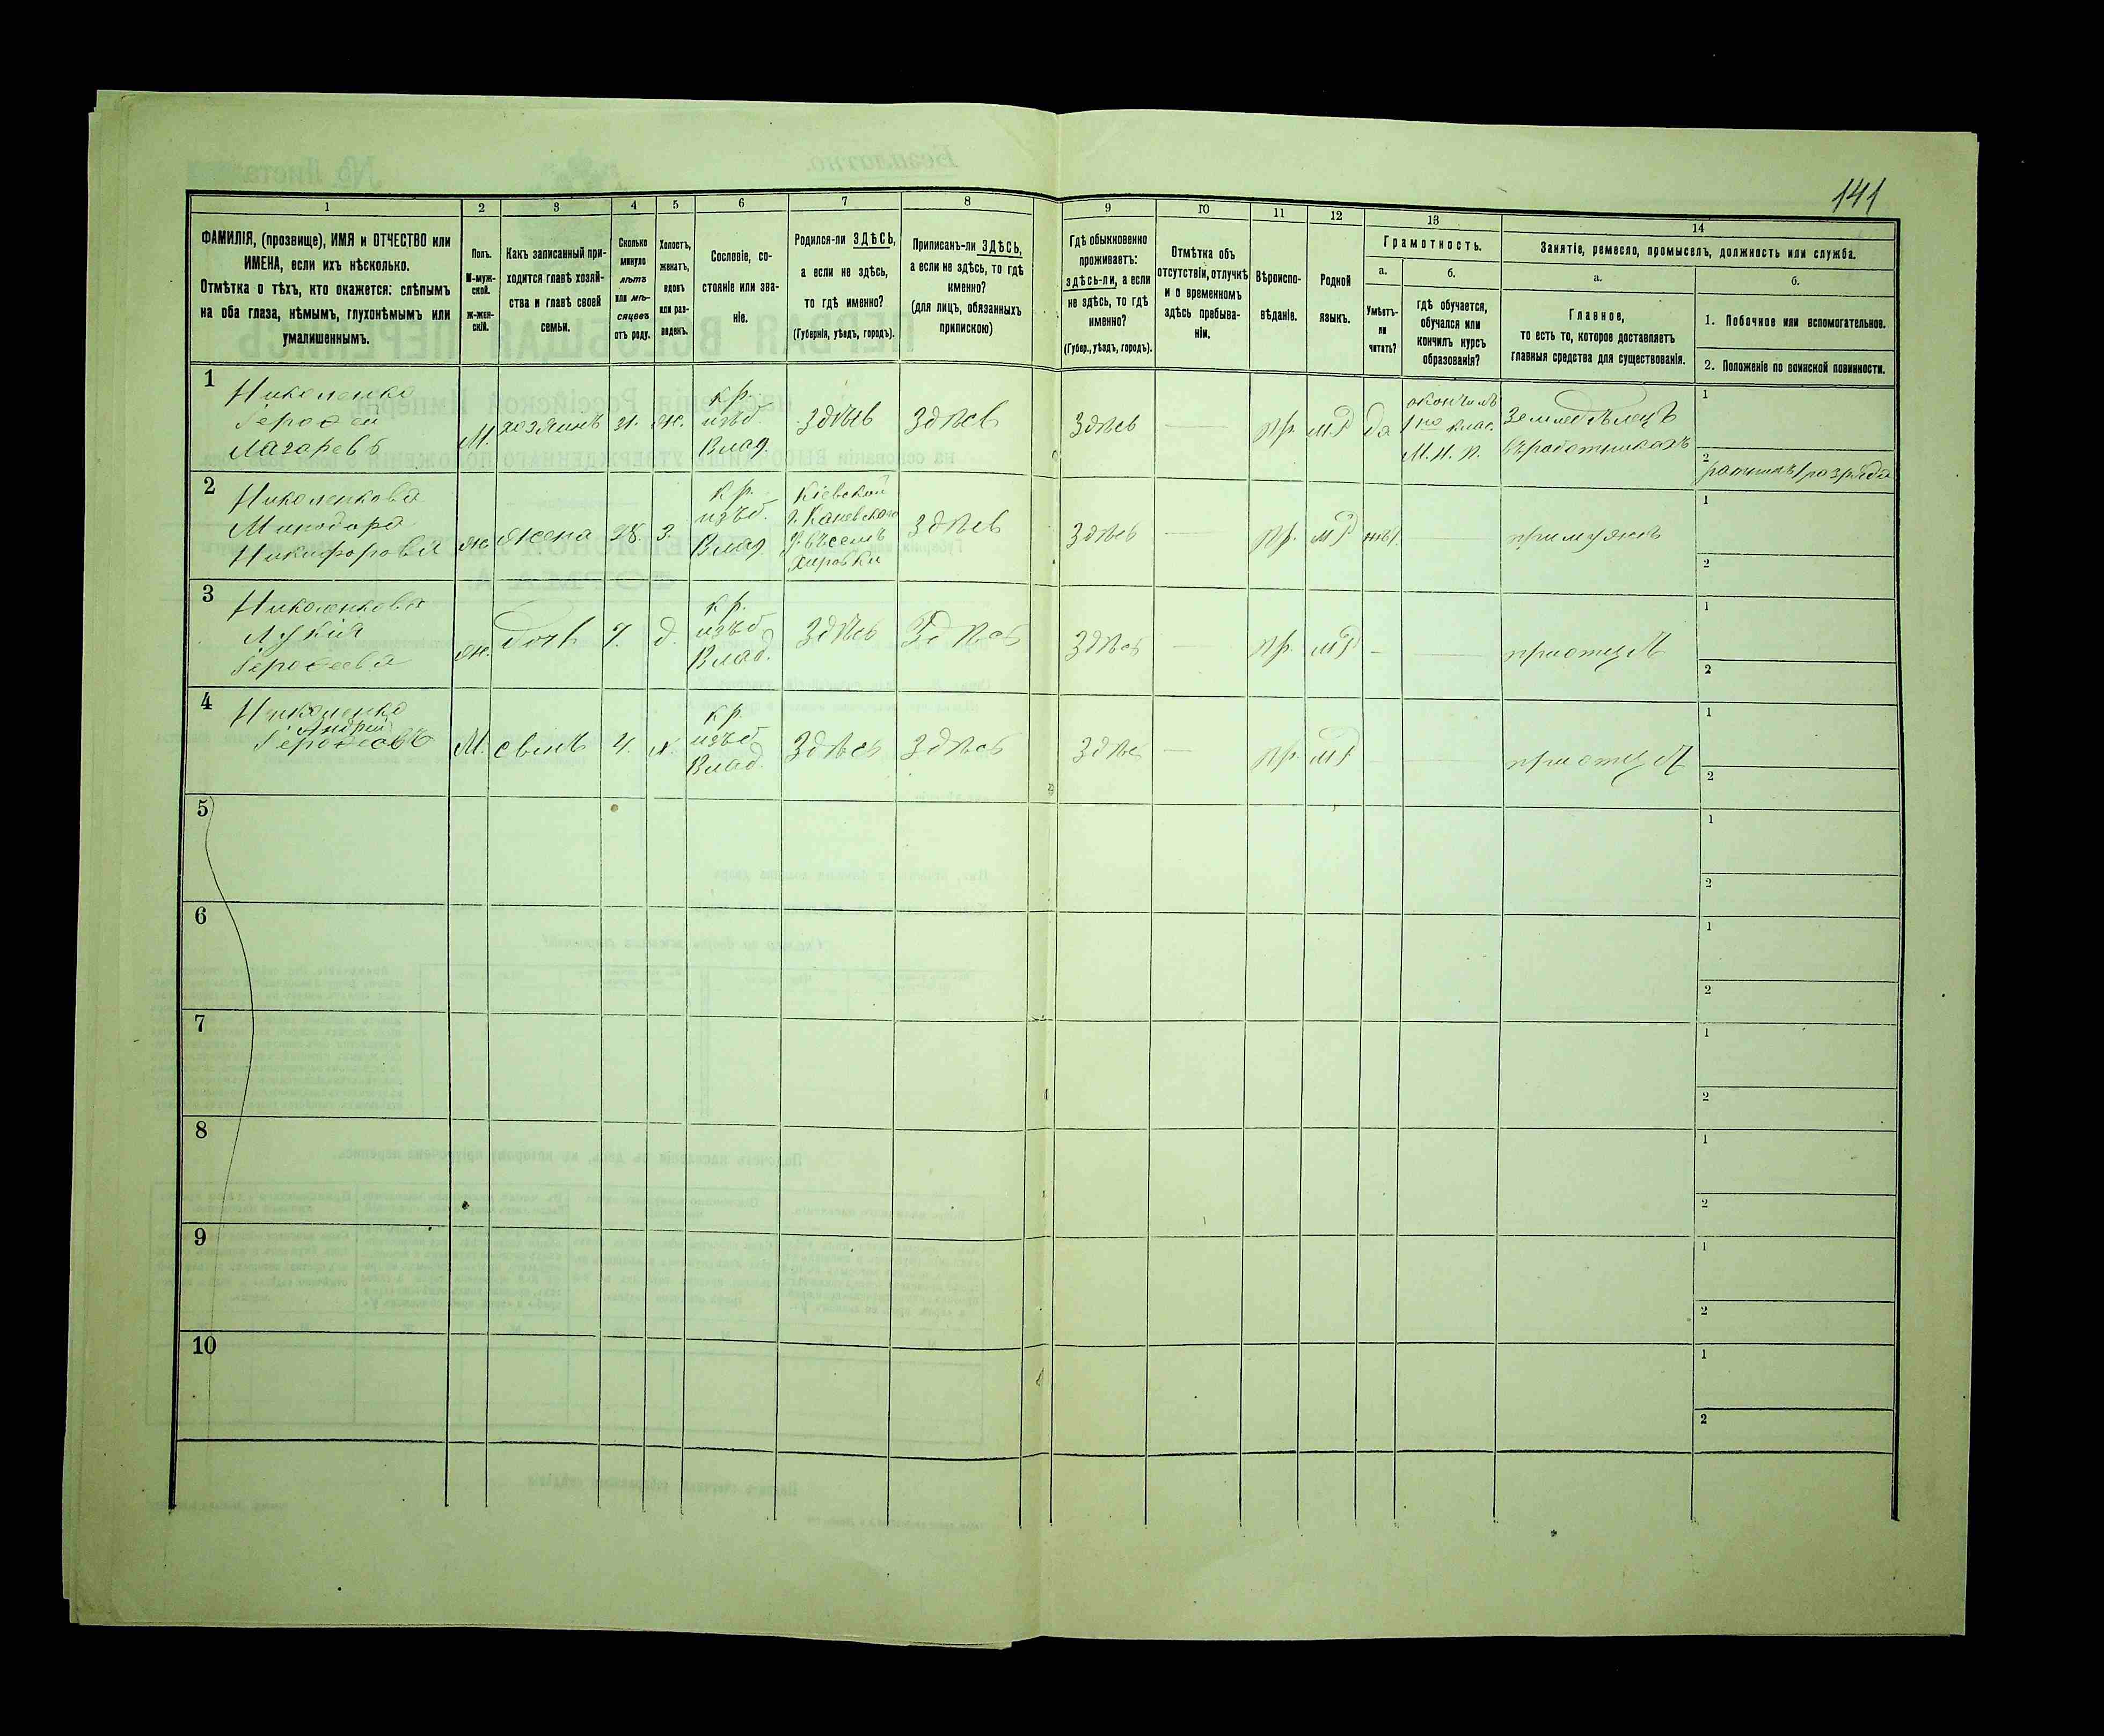 141
1 2 3 4 5 6 7 8 9 10 11 12 13 14
ФАМИЛІЯ, (прозвище), ИМЯ и ОТЧЕСТВО или
ИМЕНА, если ихъ нѣсколько.
Отмѣтка о тѣхъ, кто окажется: слѣпымъ
на оба глаза, нѣмымъ, глухонѣмымъ или
умалишеннымъ.
Полъ.
М-муж-
ской.
ж-жен-
скій.
Какъ записанный при-
ходится главѣ хозяй-
ства и главѣ своей
семьи.
Сколько
минуло
лѣтъ
или мѣ-
сяцевъ
отъ роду.
Холостъ,
женатъ,
вдовъ
или раз-
веденъ.
Сословіе, со-
стояніе или зва-
ніе.
Родился-ли ЗДѢСЬ,
а если не здѣсь,
то гдѣ именно?
(Губернія, уѣздъ, городъ).
Приписанъ-ли ЗДѢСЬ,
а если не здѣсь, то гдѣ
именно?
(для лицъ, обязанныхъ
припискою)
Гдѣ обыкновенно
проживаетъ:
здѣсь-ли, а если
не здѣсь, то гдѣ
именно?
(Губер., уѣздъ, городъ).
Отмѣтка объ
отсутствіи, отлучкѣ
и о временномъ
здѣсь пребыва-
ніи.
Вѣроиспо-
вѣданіе.
Родной
языкъ.
Грамотность.
а.
Умѣетъ-
ли
читать?
б.
гдѣ обучается,
обучался или
кончилъ курсъ
образованія?
Занятіе, ремесло, промыселъ, должность или служба.
а.
Главное,
то есть то, которое доставляетъ
главныя средства для существованія.
б.
1. Побочное или вспомогательное.
2. Положеніе по воинской повинности.
1
Николенко
Герофей
Лазаревъ
М.
хозяинъ
31.
ж.
кр.
изъб.
Влад.
Здѣсь
Здѣсь
Здѣсь
пр.
м.р
да
окончилъ
1но клас.
М. Н. П.
Земледѣлецъ
въ работникахъ
1
2
ратникъ 1 разряда
2
Николенкова
Минодора
Никифорова
ж
жена
28.
З.
кр.
изъб.
Влад
Кіевской
г. Каневскаго
у. въ селѣ
Хировки
Здѣсь
Здѣсь
пр.
мр
нѣт.
при мужѣ
1
2
3
Николенкова
Лукія
Герофеева
ж.
дочь
7.
д.
кр.
изъб
Влад.
Здѣсь
Здѣсь
Здѣсь
пр.
мр
при отцѣ
1
2
4
Николенко
Андрей
Герофеевъ
М.
сынъ
4.
х.
кр.
изъб
Влад.
Здѣсь
Здѣсь
Здѣсь
пр.
мр
при отцѣ
1
2
5
1
2
6
1
2
7
1
2
8
1
2
9
1
2
10
1
2